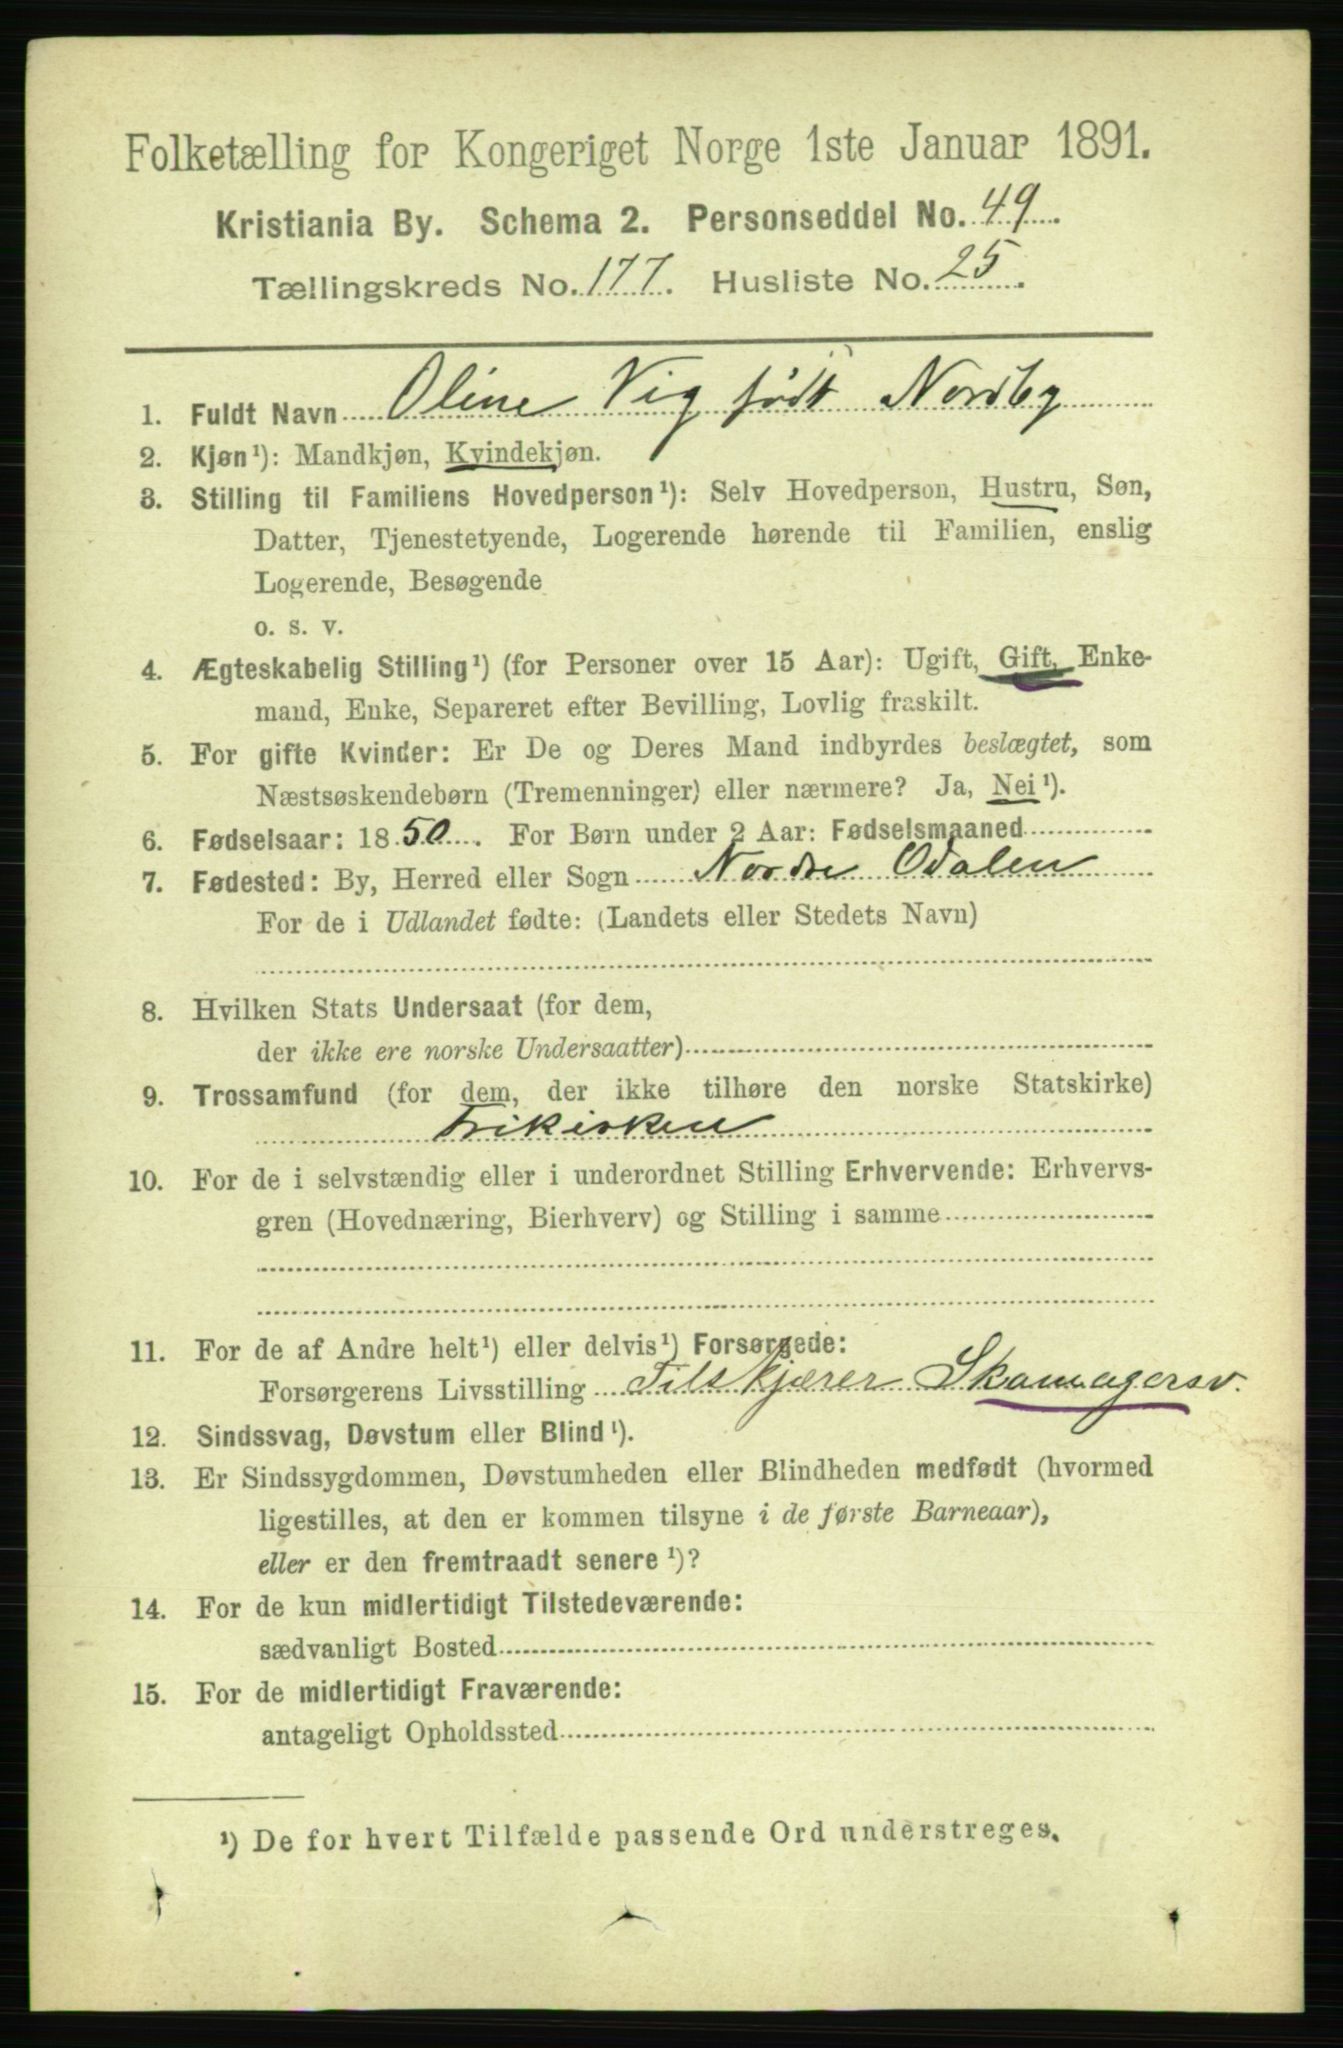 Folketælling for Kongeriget Norge 1ste Januar 1891.
Kristiania By. Schema 2. Personseddel No. 49.
Tællingskreds No. 177. Husliste No. 25.
1. Fuldt Navn Oline Vig født Nordby
2. Kjøn¹): Mandkjøn, Kvindekjøn.
3. Stilling til Familiens Hovedperson¹): Selv Hovedperson, Hustru, Søn,
Datter, Tjenestetyende, Logerende hørende til Familien, enslig
Logerende, Besøgende
o. s. v.
4. Ægteskabelig Stilling¹) (for Personer over 15 Aar): Ugift, Gift, Enke-
mand, Enke, Separeret efter Bevilling, Lovlig fraskilt.
5. For gifte Kvinder: Er De og Deres Mand indbyrdes beslægtet, som
Næstsøskendebørn (Tremenninger) eller nærmere? Ja, Nei¹).
6. Fødselsaar: 1850. For Børn under 2 Aar: Fødselsmaaned
7. Fødested: By, Herred eller Sogn Nordre Odalen
For de i Udlandet fødte: (Landets eller Stedets Navn)
8. Hvilken Stats Undersaat (for dem,
der ikke ere norske Undersaatter)
9. Trossamfund (for dem, der ikke tilhøre den norske Statskirke)
Frikirken
10. For de i selvstændig eller i underordnet Stilling Erhvervende: Erhvervs-
gren (Hovednæring, Bierhverv) og Stilling i samme
11. For de af Andre helt¹) eller delvis¹) Forsørgede:
Forsørgerens Livsstilling Tilskjærer Skomagersv.
12. Sindssvag, Døvstum eller Blind¹).
13. Er Sindssygdommen, Døvstumheden eller Blindheden medfødt (hvormed
ligestilles, at den er kommen tilsyne i de første Barneaar),
eller er den fremtraadt senere¹)?
14. For de kun midlertidigt Tilstedeværende:
sædvanligt Bosted
15. For de midlertidigt Fraværende:
antageligt Opholdssted
¹) De for hvert Tilfælde passende Ord understreges.